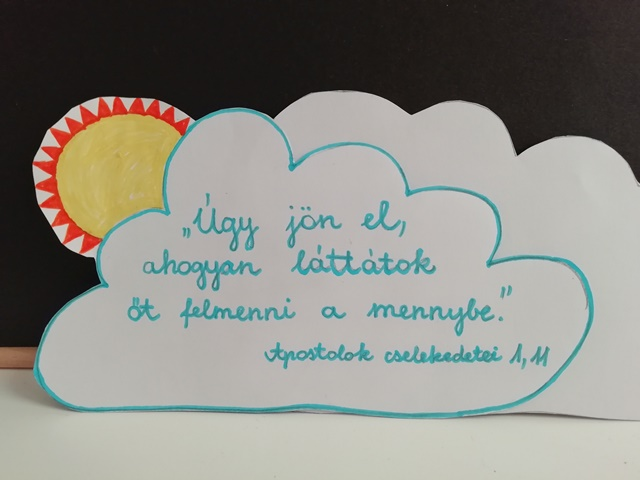 „Úgy jön el,
ahogyan láttátok
őt felmenni a mennybe.”
Apostolok cselekedetei 1,11